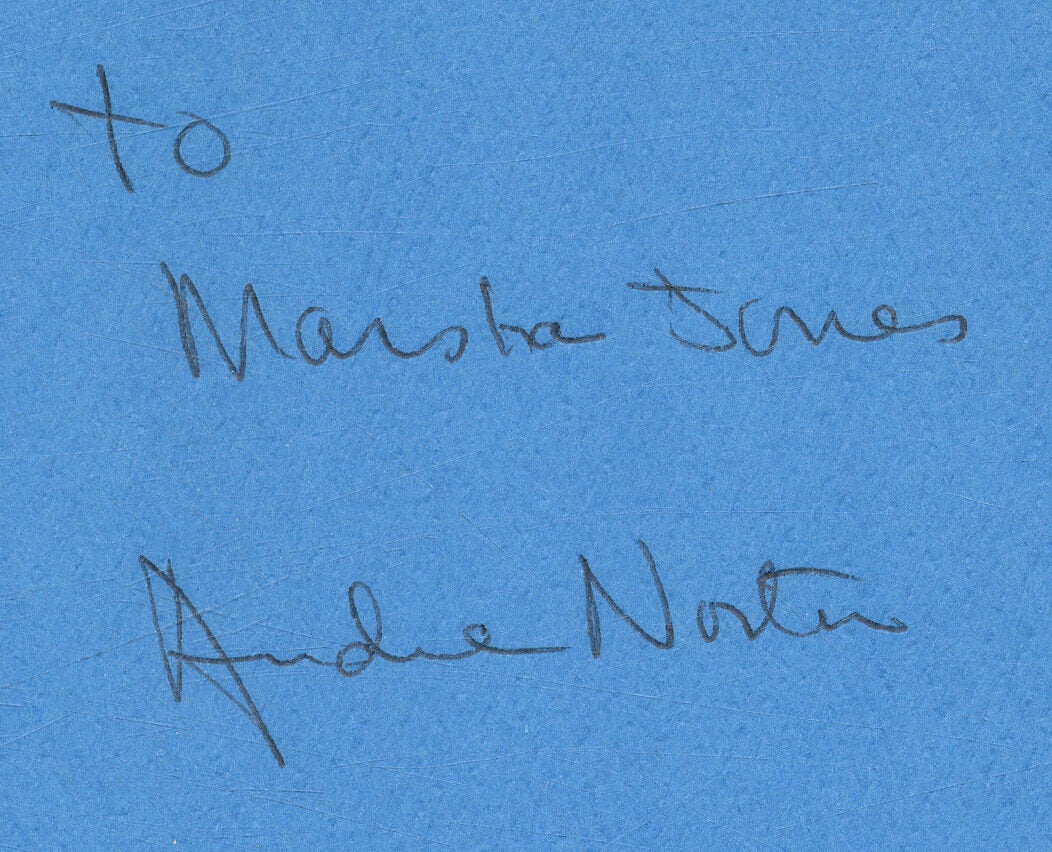 to
Marsha Jones
Andre Norton